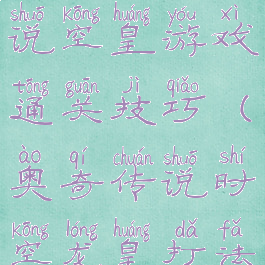 shuō kōng huáng yóu xì
说空皇游戏
tōng guān jì qiǎo
通关技巧（
ào qí chuán shuō shí
奥奇传说时
kōng lóng huáng dǎ fǎ
空龙皇打法